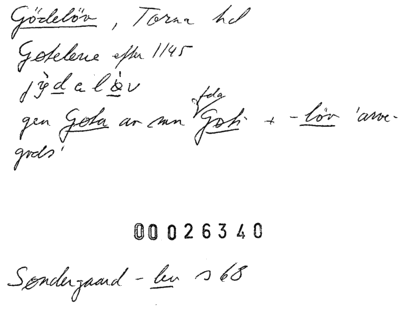 Gödelöv, Torna hd
Goteleue efter 1145
jỳdalòv
fda
gen Gota av mn Goti + -löv 'arve-
gods'
00026340
Søndergaard - lev s 68